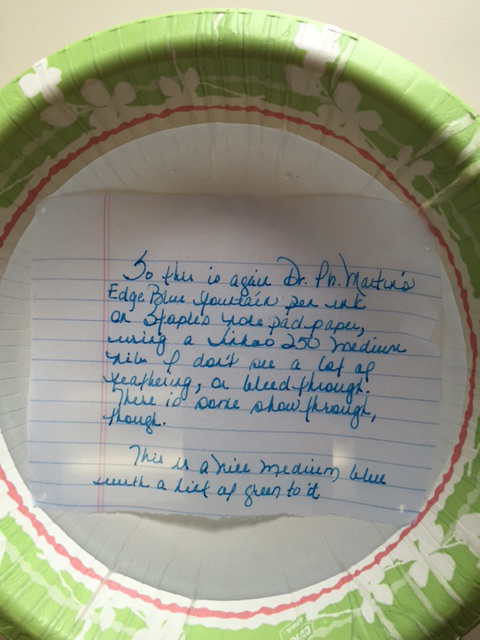 So this is again Dr. Ph. Martin's
Edge Blue fountain pen ink
on Staples note pad paper,
using a Jinhao 250 medium
nib. I don't see a lot of
feathering, or bleedthrough.
There is some showthrough,
though.
This is a nice medium blue
with a hint of green to it